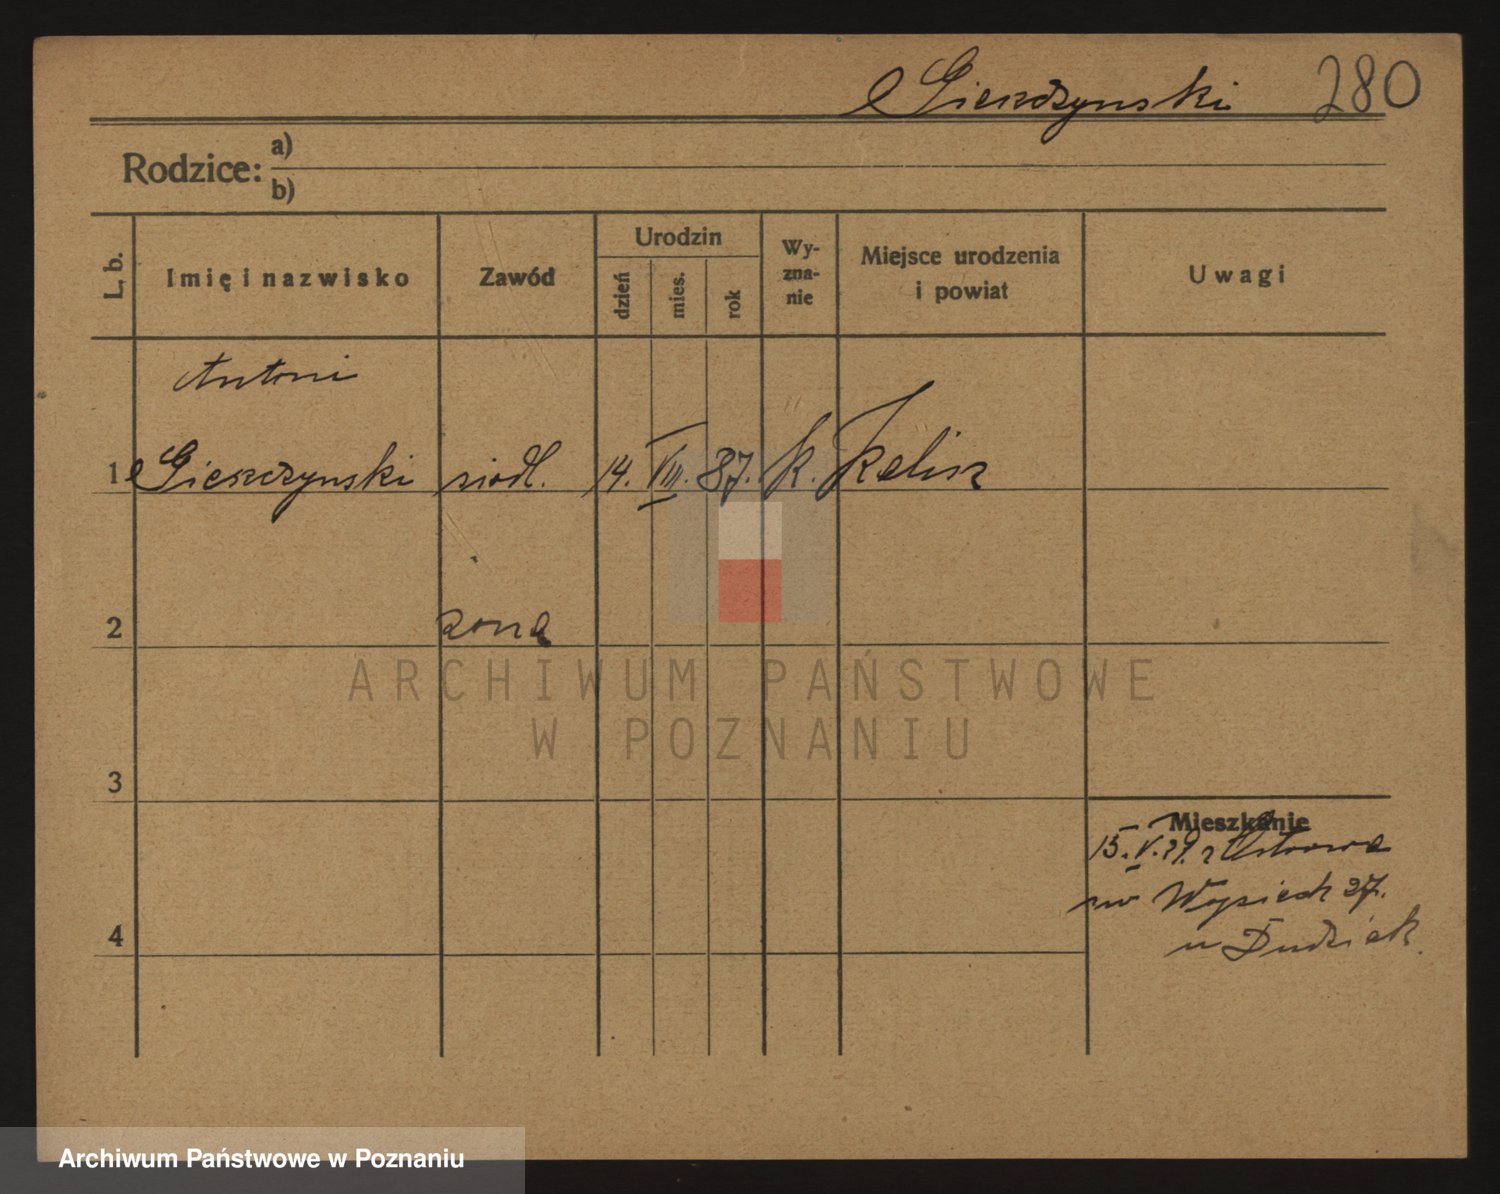 Gieszczynski 280
Rodzice: a)
b)
L. b. Imię i nazwisko Zawód Urodzin dzień mies. rok Wy-zna-nie Miejsce urodzenia i powiat Uwagi
Antoni
1 Gieszczynski siodl. 14. VIII. 87. k. Kalisz
2 żona
ARCHIWUM PAŃSTWOWE
W POZNANIU
3
Mieszkanie
15. V. 29. z Ostrowa
4
27.
u Dudziak.
Archiwum Państwowe w Poznaniu